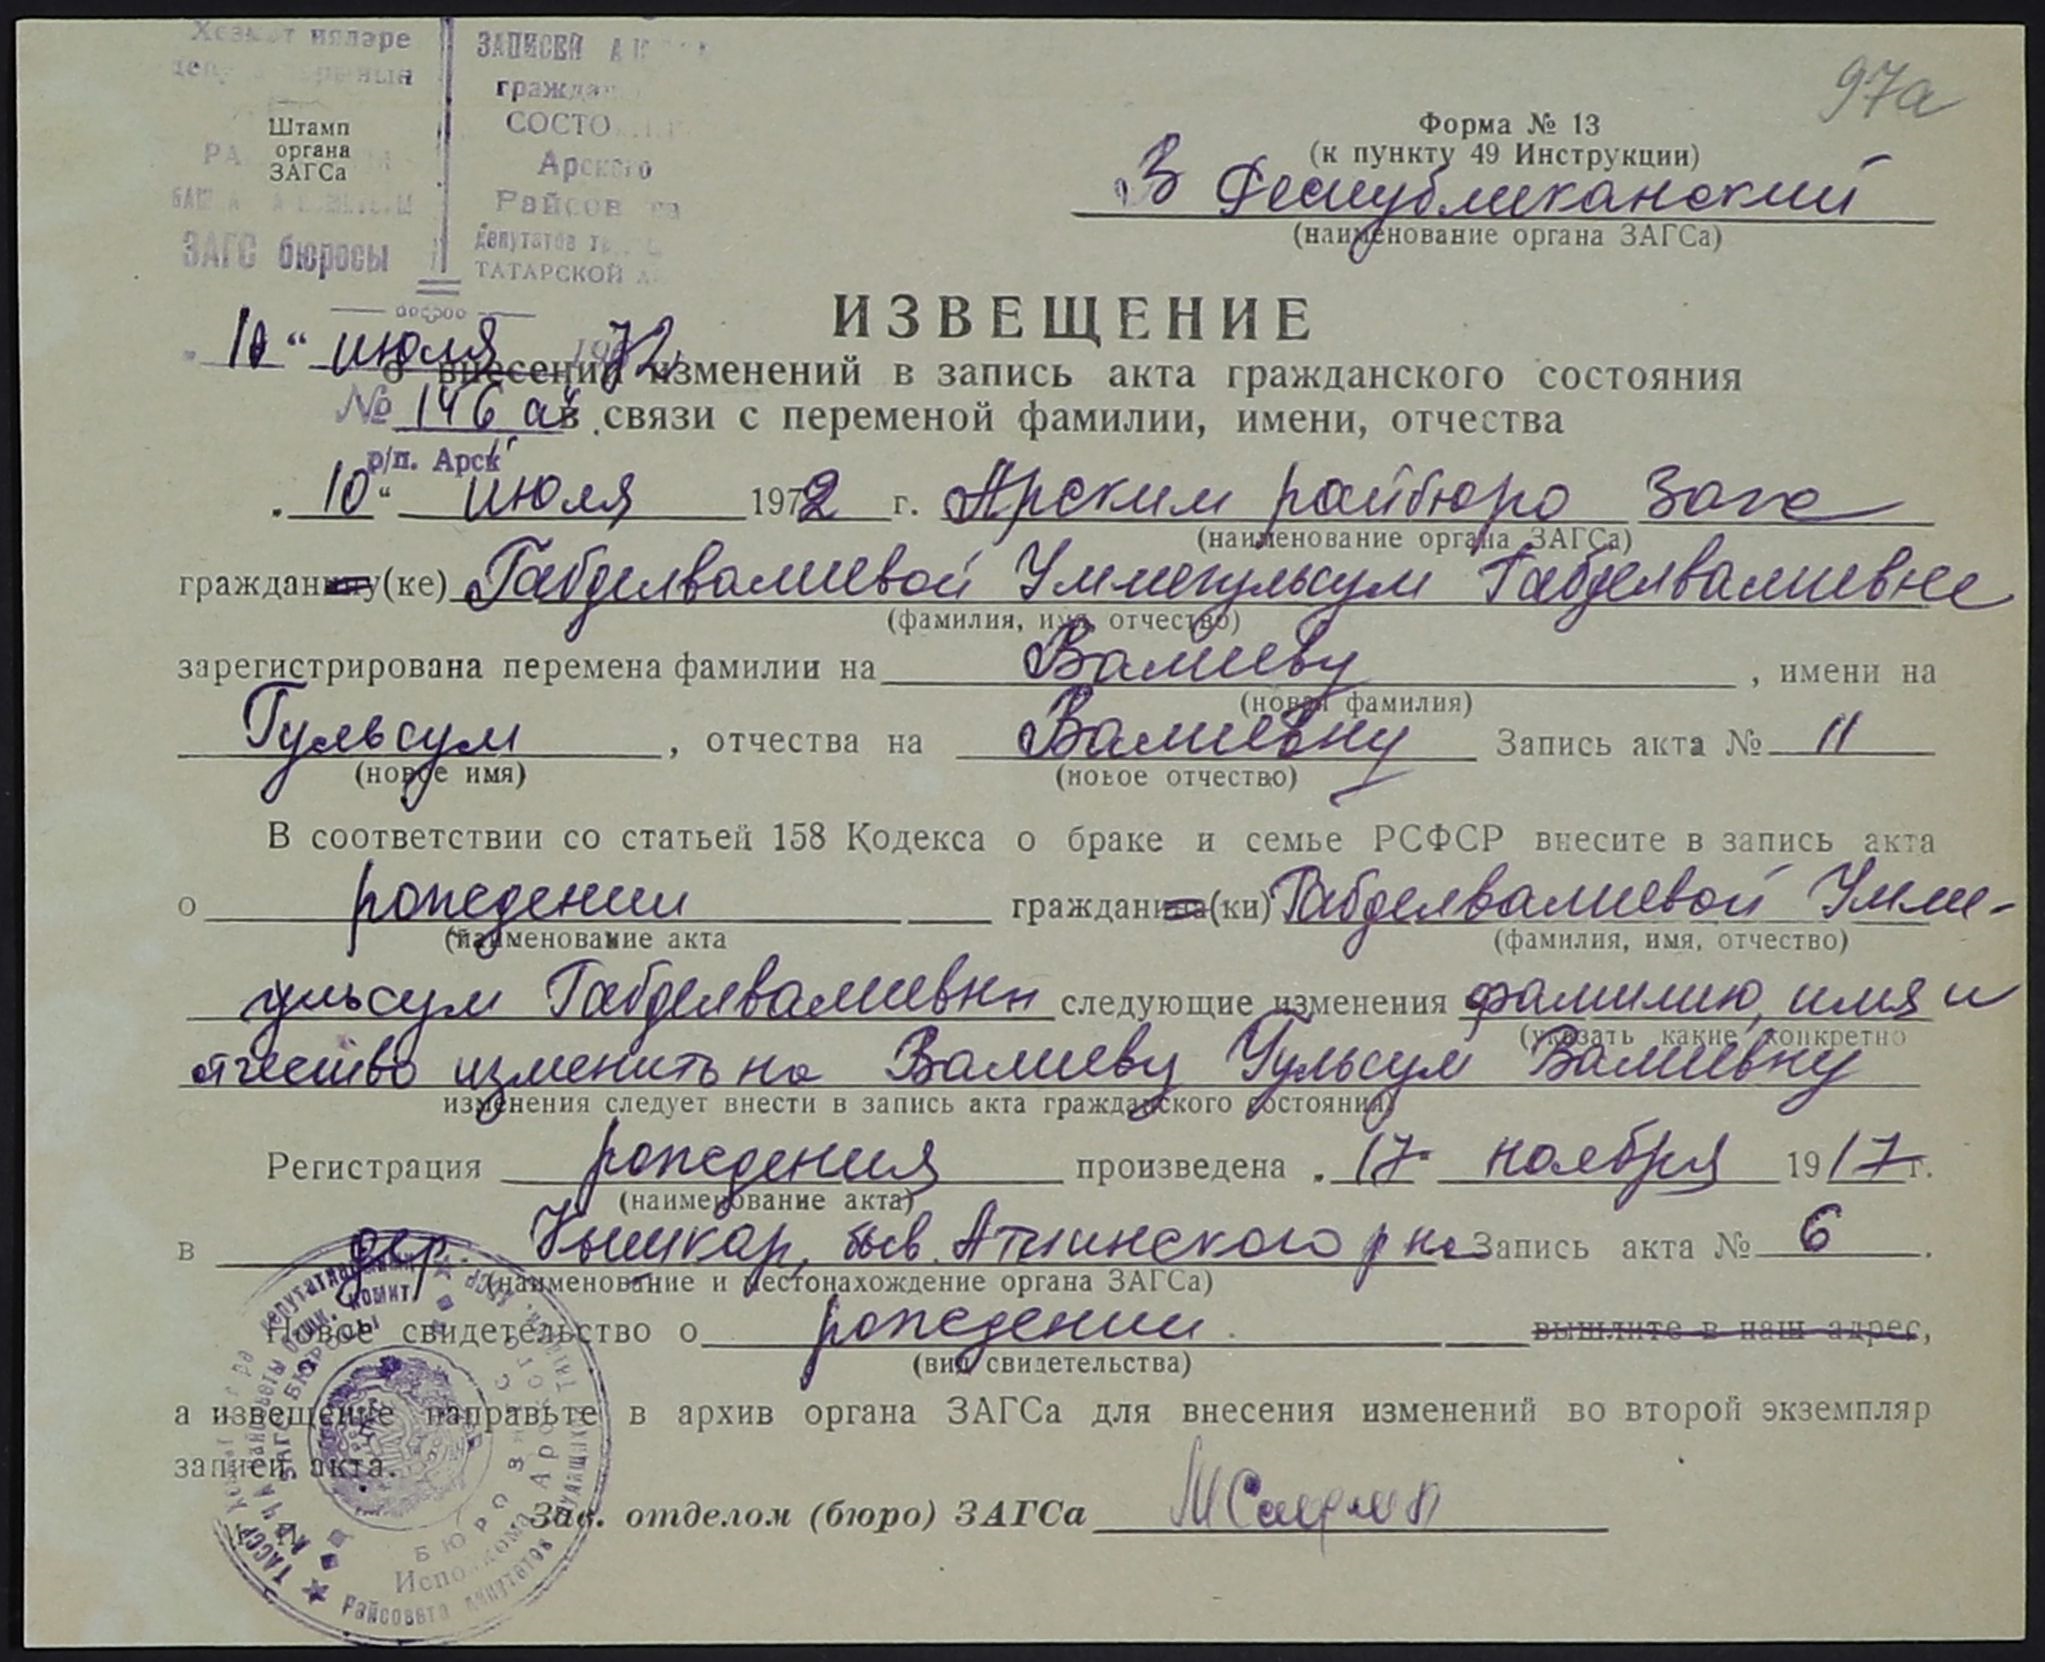 97а
Хезмәт ияләре
ЗАПИСЕЙ
СОСТО
Штамп
органа
ЗАГСа
Арского
Райсов та
депутатов
ЗАГС бюросы
ТАТАРСКОЙ
Форма № 13
(к пункту 49 Инструкции)
В Республиканский
(наименование органа ЗАГСа)
ИЗВЕЩЕНИЕ
10 “ июля 1972
о внесении изменений в запись акта гражданского состояния
№ 146 а
в связи с переменой фамилии, имени, отчества
р/п. Арск
„ 10 “ июля 1972 г. Арским райбюро загс
(наименование органа ЗАГСа)
гражданину(ке) Габделвалиевой Уммегульсум Габделвалиевне
(фамилия, имя, отчество)
зарегистрирована перемена фамилии на Валиеву , имени на
(новая фамилия)
Гульсум , отчества на Валиевну Запись акта № 11
(новое имя) (новое отчество)
В соответствии со статьей 158 Кодекса о браке и семье РСФСР внесите в запись акта
о рождении гражданина(ки) Габделвалиевой Умме-
(наименование акта (фамилия, имя, отчество)
гульсум Габделвалиевны следующие изменения фамилию, имя и
(указать какие конкретно
отчество изменить на Валиеву Гульсум Валиевну
изменения следует внести в запись акта гражданского состояния)
Регистрация рождения произведена „ 17 “ ноября 1917 г.
(наименование акта)
в дер. Кышкар, быв. Атнинского р на Запись акта № 6 .
(наименование и местонахождение органа ЗАГСа)
Новое свидетельство о рождении вышлите в наш адрес,
(вид свидетельства)
а извещение направьте в архив органа ЗАГСа для внесения изменений во второй экземпляр
записи акта.
Зав. отделом (бюро) ЗАГСа
ЗАГС БЮРОСЫ
БЮРО ЗАГС
Исполкома Арского
Райсовета депутатов трудящихся